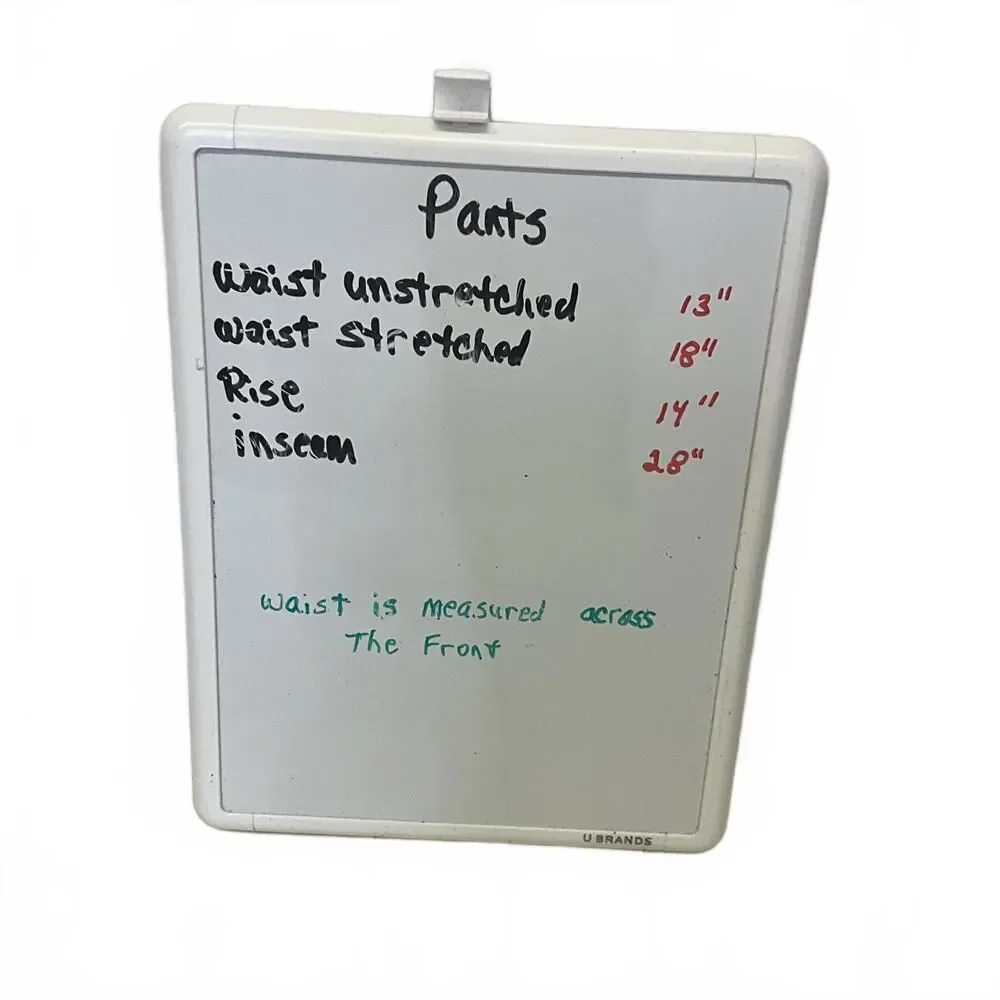 Pants
waist unstretched 13"
waist stretched 18"
Rise 14"
inseam 28"
waist is measured across
The Front
U BRANDS